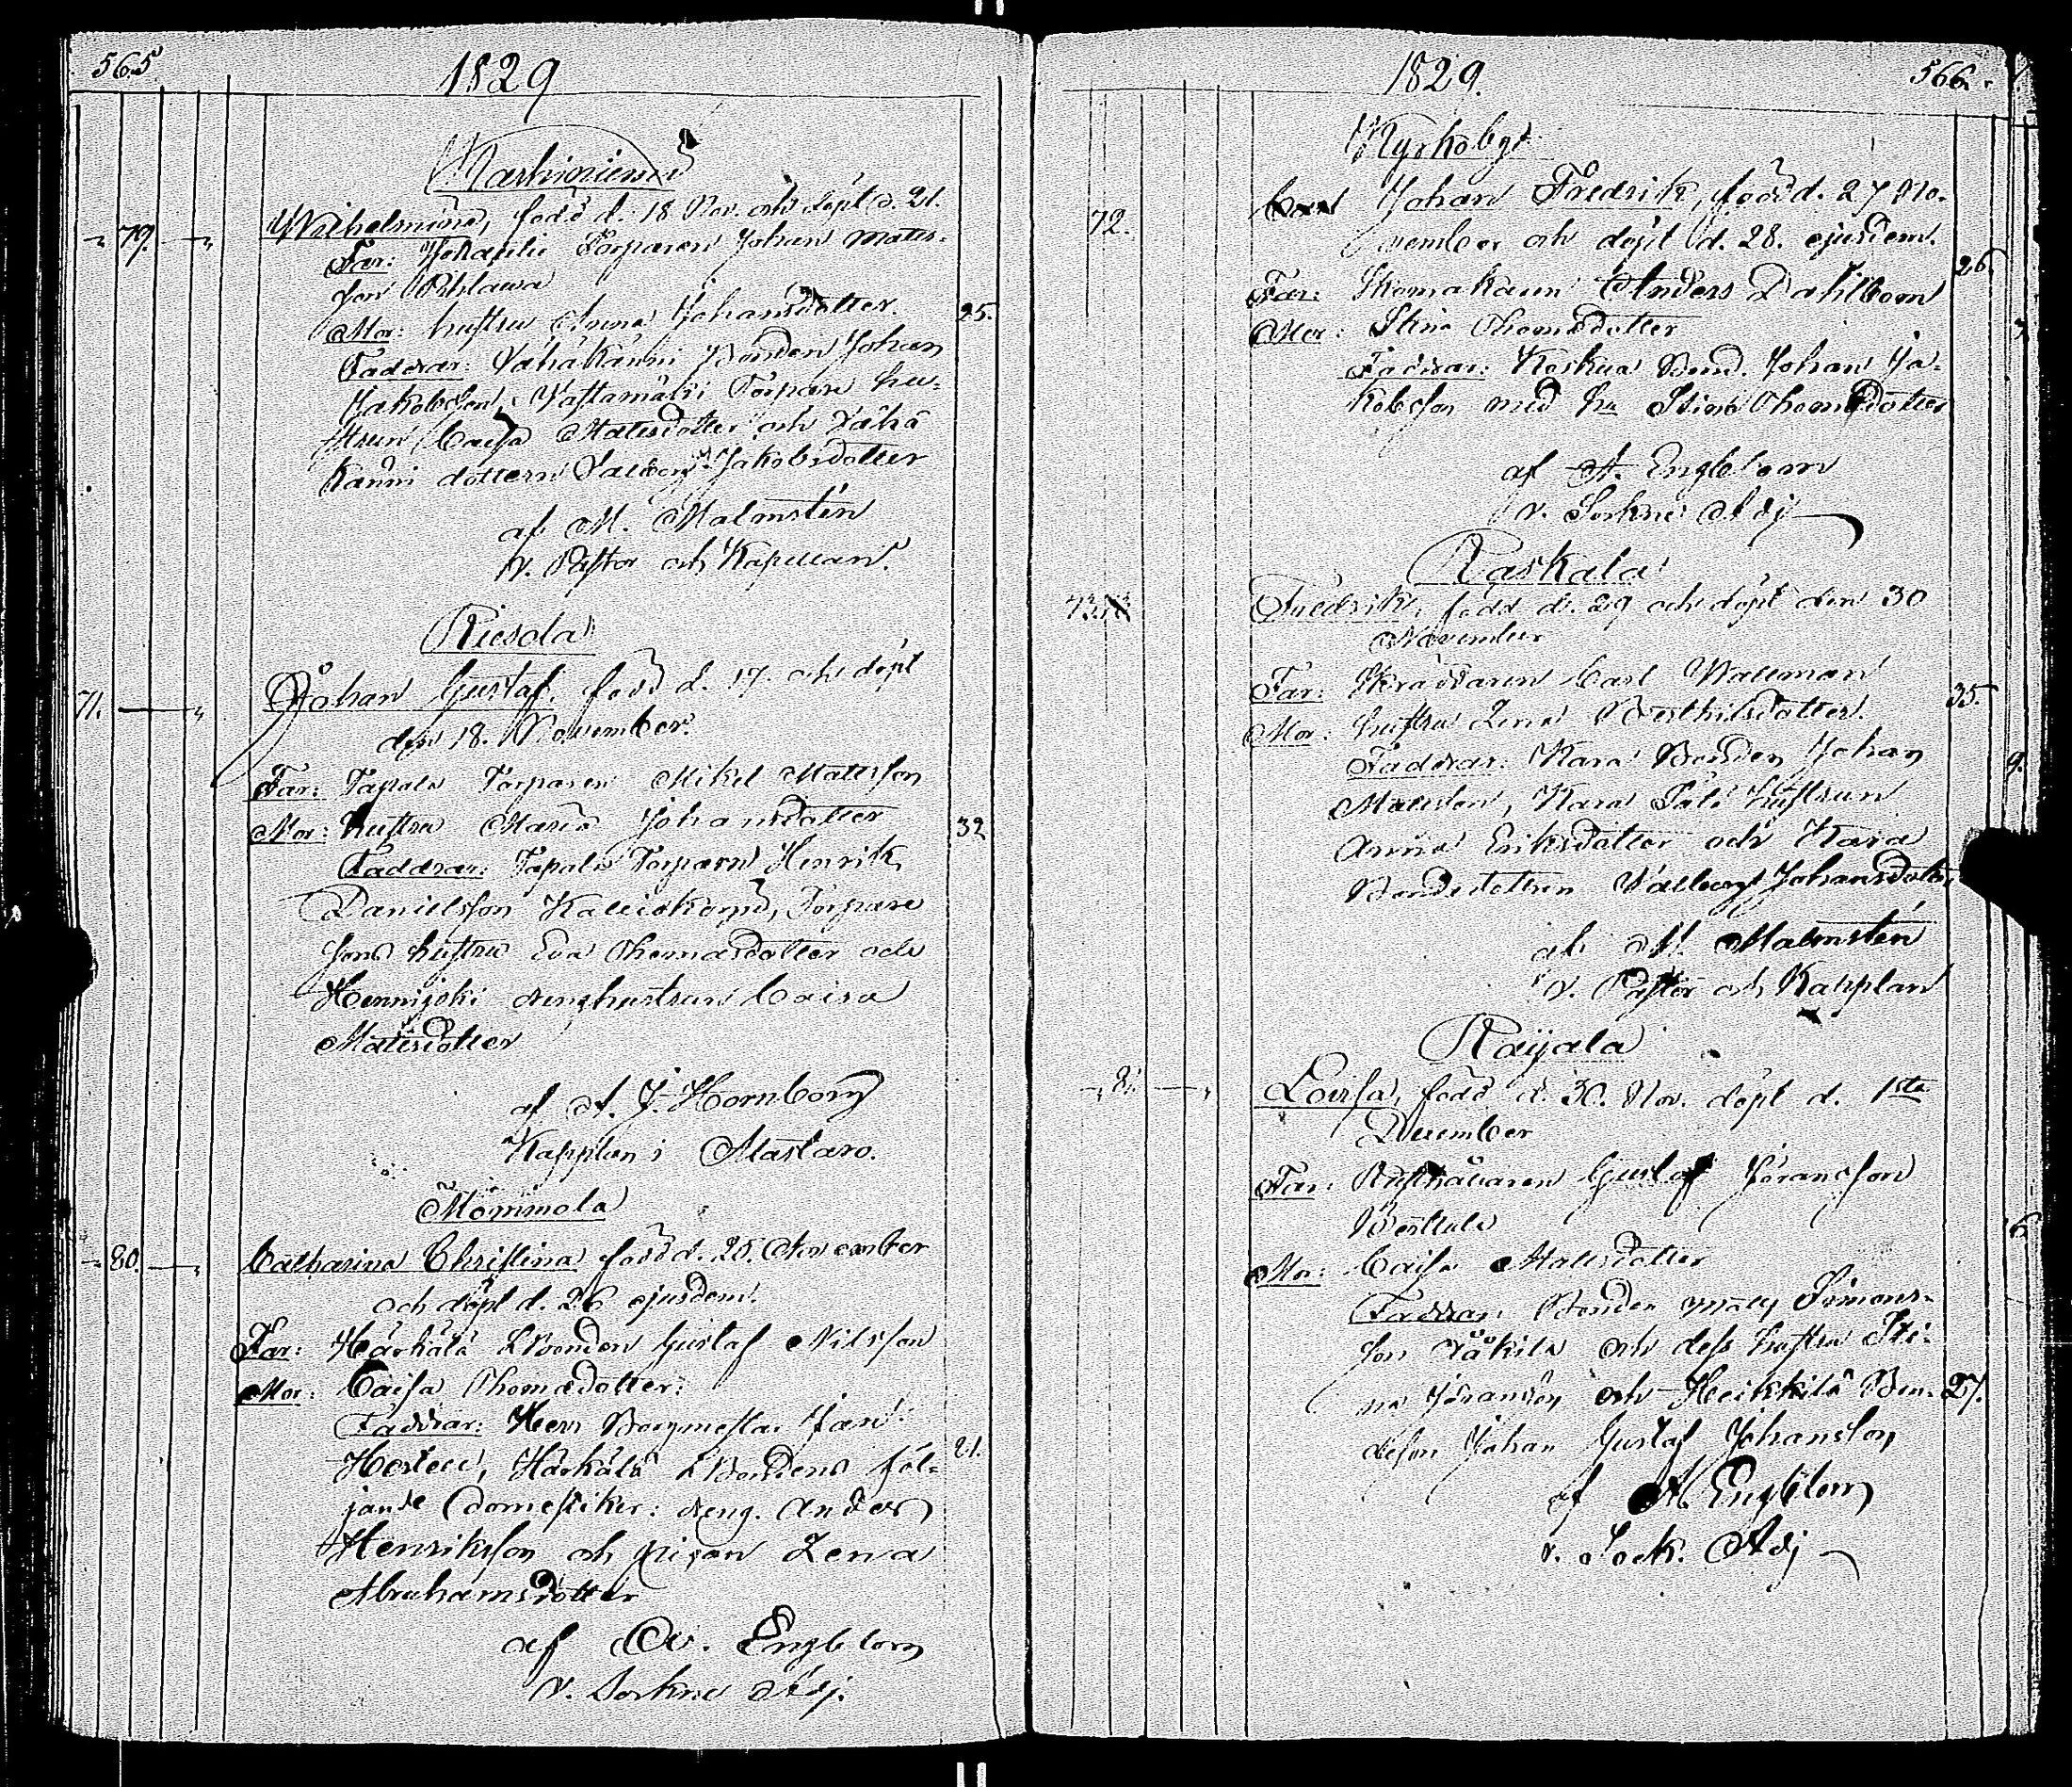 565
1829
Wilhelmina, född d. 18 Nov. och döpt d. 21.
79.
Far: Torparen Johan Mats-
son
Mor: hustru Anna Johansdotter.
25.
Faddrar: Vähäkänni Bonden Johan
Jakobsson, Torpare hu-
strun Caisa Matsdotter och Vähä
känni dottern Valborg Jakobsdotter
af M. Malmstén
v. Pastor och Kapellan.
Riesola
Johan Gustaf, född d. 17. och döpt
71.
den 18. November.
Far: Tapala Torparen Mikel Matsson
Mor: hustru Maria Johansdotter
32
Faddrar: Tapala Torparn Henrik
Danielsson Torpare
sons hustru Eva Thomasdotter och
Hennijoki drenghustrun Caisa
Matsdotter
af A. J. Hornborg
Kapplan i Mastaro.
Mommola
Catharina Christina född d. 25. November
80.
och döpt d. 26 ejusdem.
Far: Härkälä Bonden Gustaf Nilsson
Mor: Caisa Thomædotter.
Faddrar: Herr Borgmestar
Härkälä Bondens föl-
21.
jande domestiker: dreng. Anders
Henriksson och pigan Lena
Abrahamsdotter
af A. Engblom
v. Sockne Adj.
1829.
566.
Kyrkobyn
Johan Fredrik, född d. 27 No-
72.
vember och döpt d. 28. ejusdem.
26.
Far: Skomakarn Anders Dahlbom
Mor: Stina Thomædotter
Faddrar: Koskua Bond. Johan Ja-
kobsson med hu Stina Thomædotter
af A. Engblom
v. Sockne Adj
Raskala
Fredrik, född d. 29 och döpt den 30
73.
November
Far: Skräddaren Carl Wallman
35.
Mor: hustru Lena Berthilsdotter.
Faddrar: Kara Bonden Johan
9.
Mattsson, Kara hustrun
Anna Eriksdotter och Kara
Bondedottren Valborg Johansdotter
af M. Malmstén
v. Pastor och Kapplan
Raijala
Lovisa, född d. 30. Nov. döpt d. 1sta
8.
December
Far: Rusthållaren Gustaf Jöransson
6
Mor: Caisa Mattsdotter
Faddrar: Bonden Simons-
son och dess hustru Sti-
na och Heikkilä Bon-
27.
deson Johan Gustaf Johansson
af A. Engblom
v. Sock. Adj